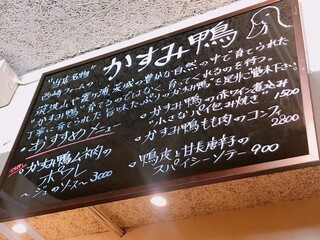 "当店名物" かすみ鴨
西崎ファームの
筑波山や霞ヶ浦 茨城の豊かな自然の中で育てられた
かすみ鴨。育てるのではなく、育ってくれるのを待つ。
丁寧に育てられた旨味たっぷりのかすみ鴨を是非ご堪能下さい。
おすすめメニュー
・かすみ鴨ムネ肉の
ポワレ
〜ジュのソース〜 3000
・かすみ鴨の赤ワイン煮込み
小さなパイ包み焼き 1500
・かすみ鴨もも肉のコンフィ
2800
・鴨皮と甘長唐辛子の
スパイシーソテー 900